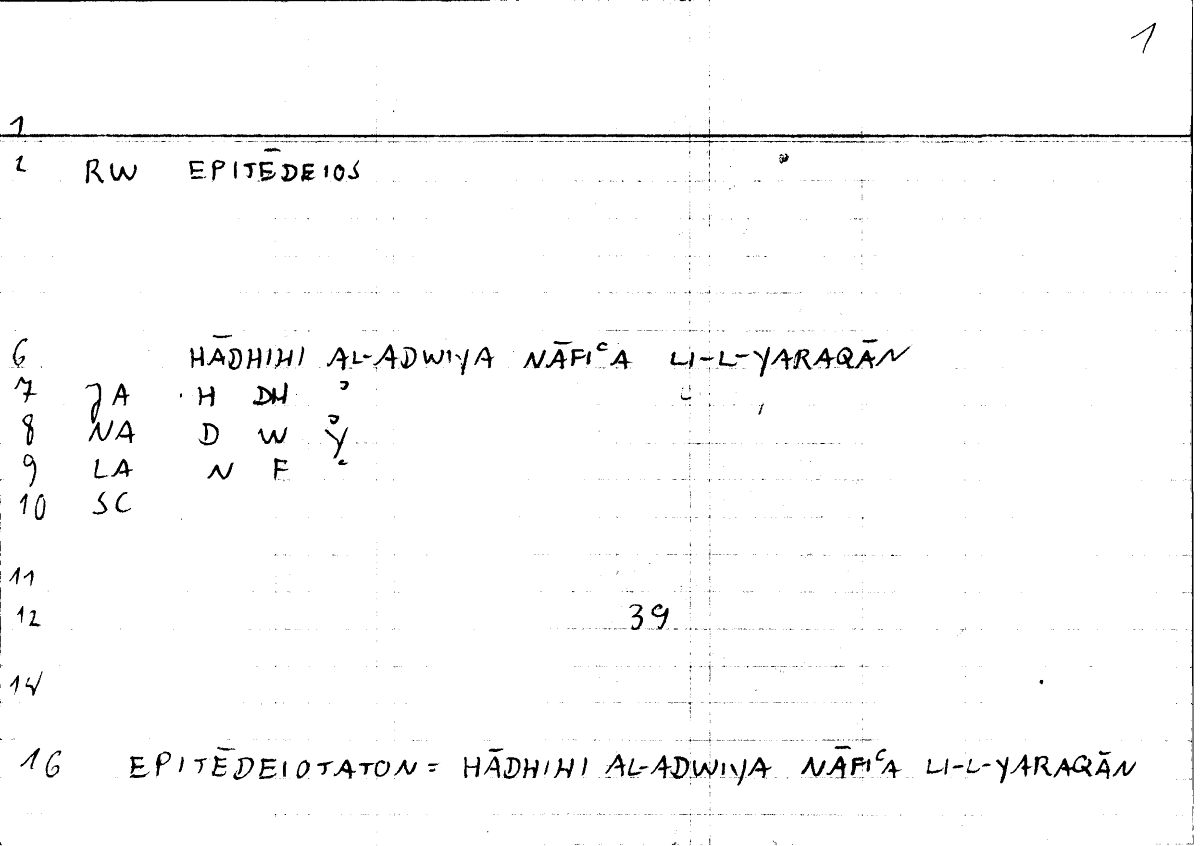 1
1
2 RW EPITĒDEIOS
6 HĀDHIHI AL-ADWIYA NĀFIʿA LI-L-YARAQĀN
7 JA H DH ʾ
8 NA D W Y
9 LA N F ʿ
10 SC
11
12 39
14
16 EPITĒDEIOTATON = HĀDHIHI AL-ADWIYA NĀFIʿA LI-L-YARAQĀN